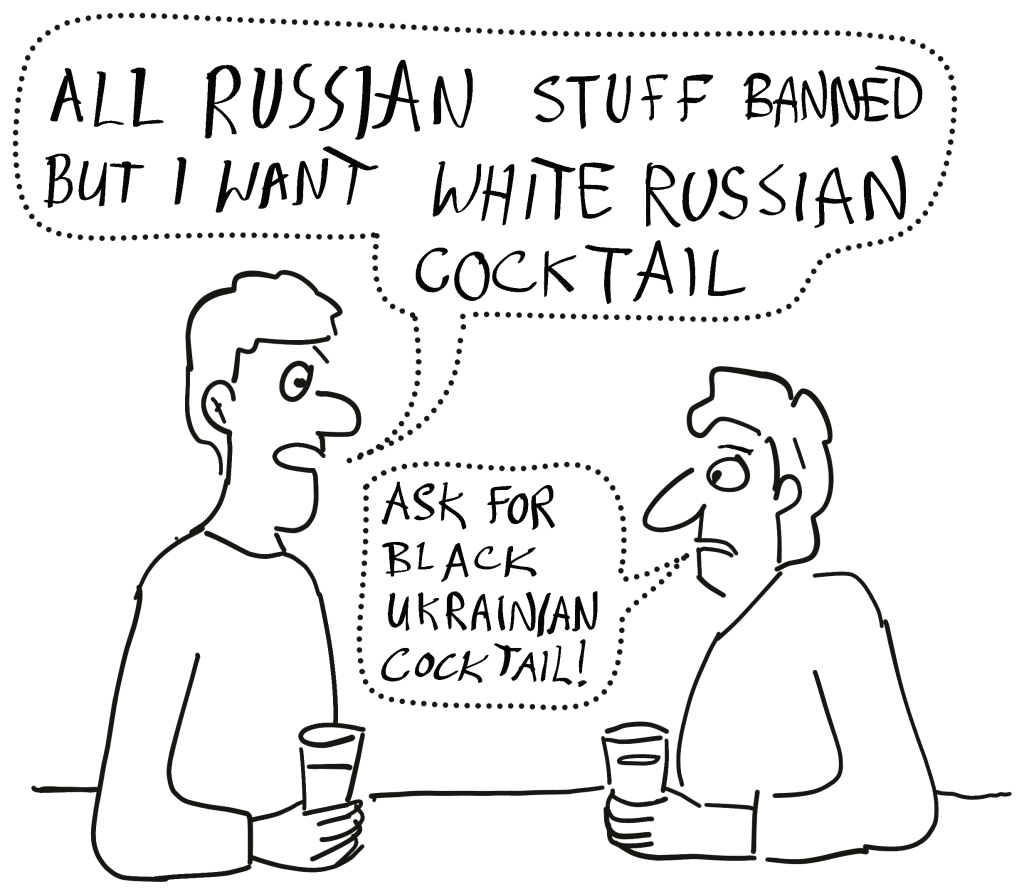 ALL RUSSIAN STUFF BANNED
BUT I WANT WHITE RUSSIAN
COCKTAIL
ASK FOR
BLACK
UKRAINIAN
COCKTAIL!